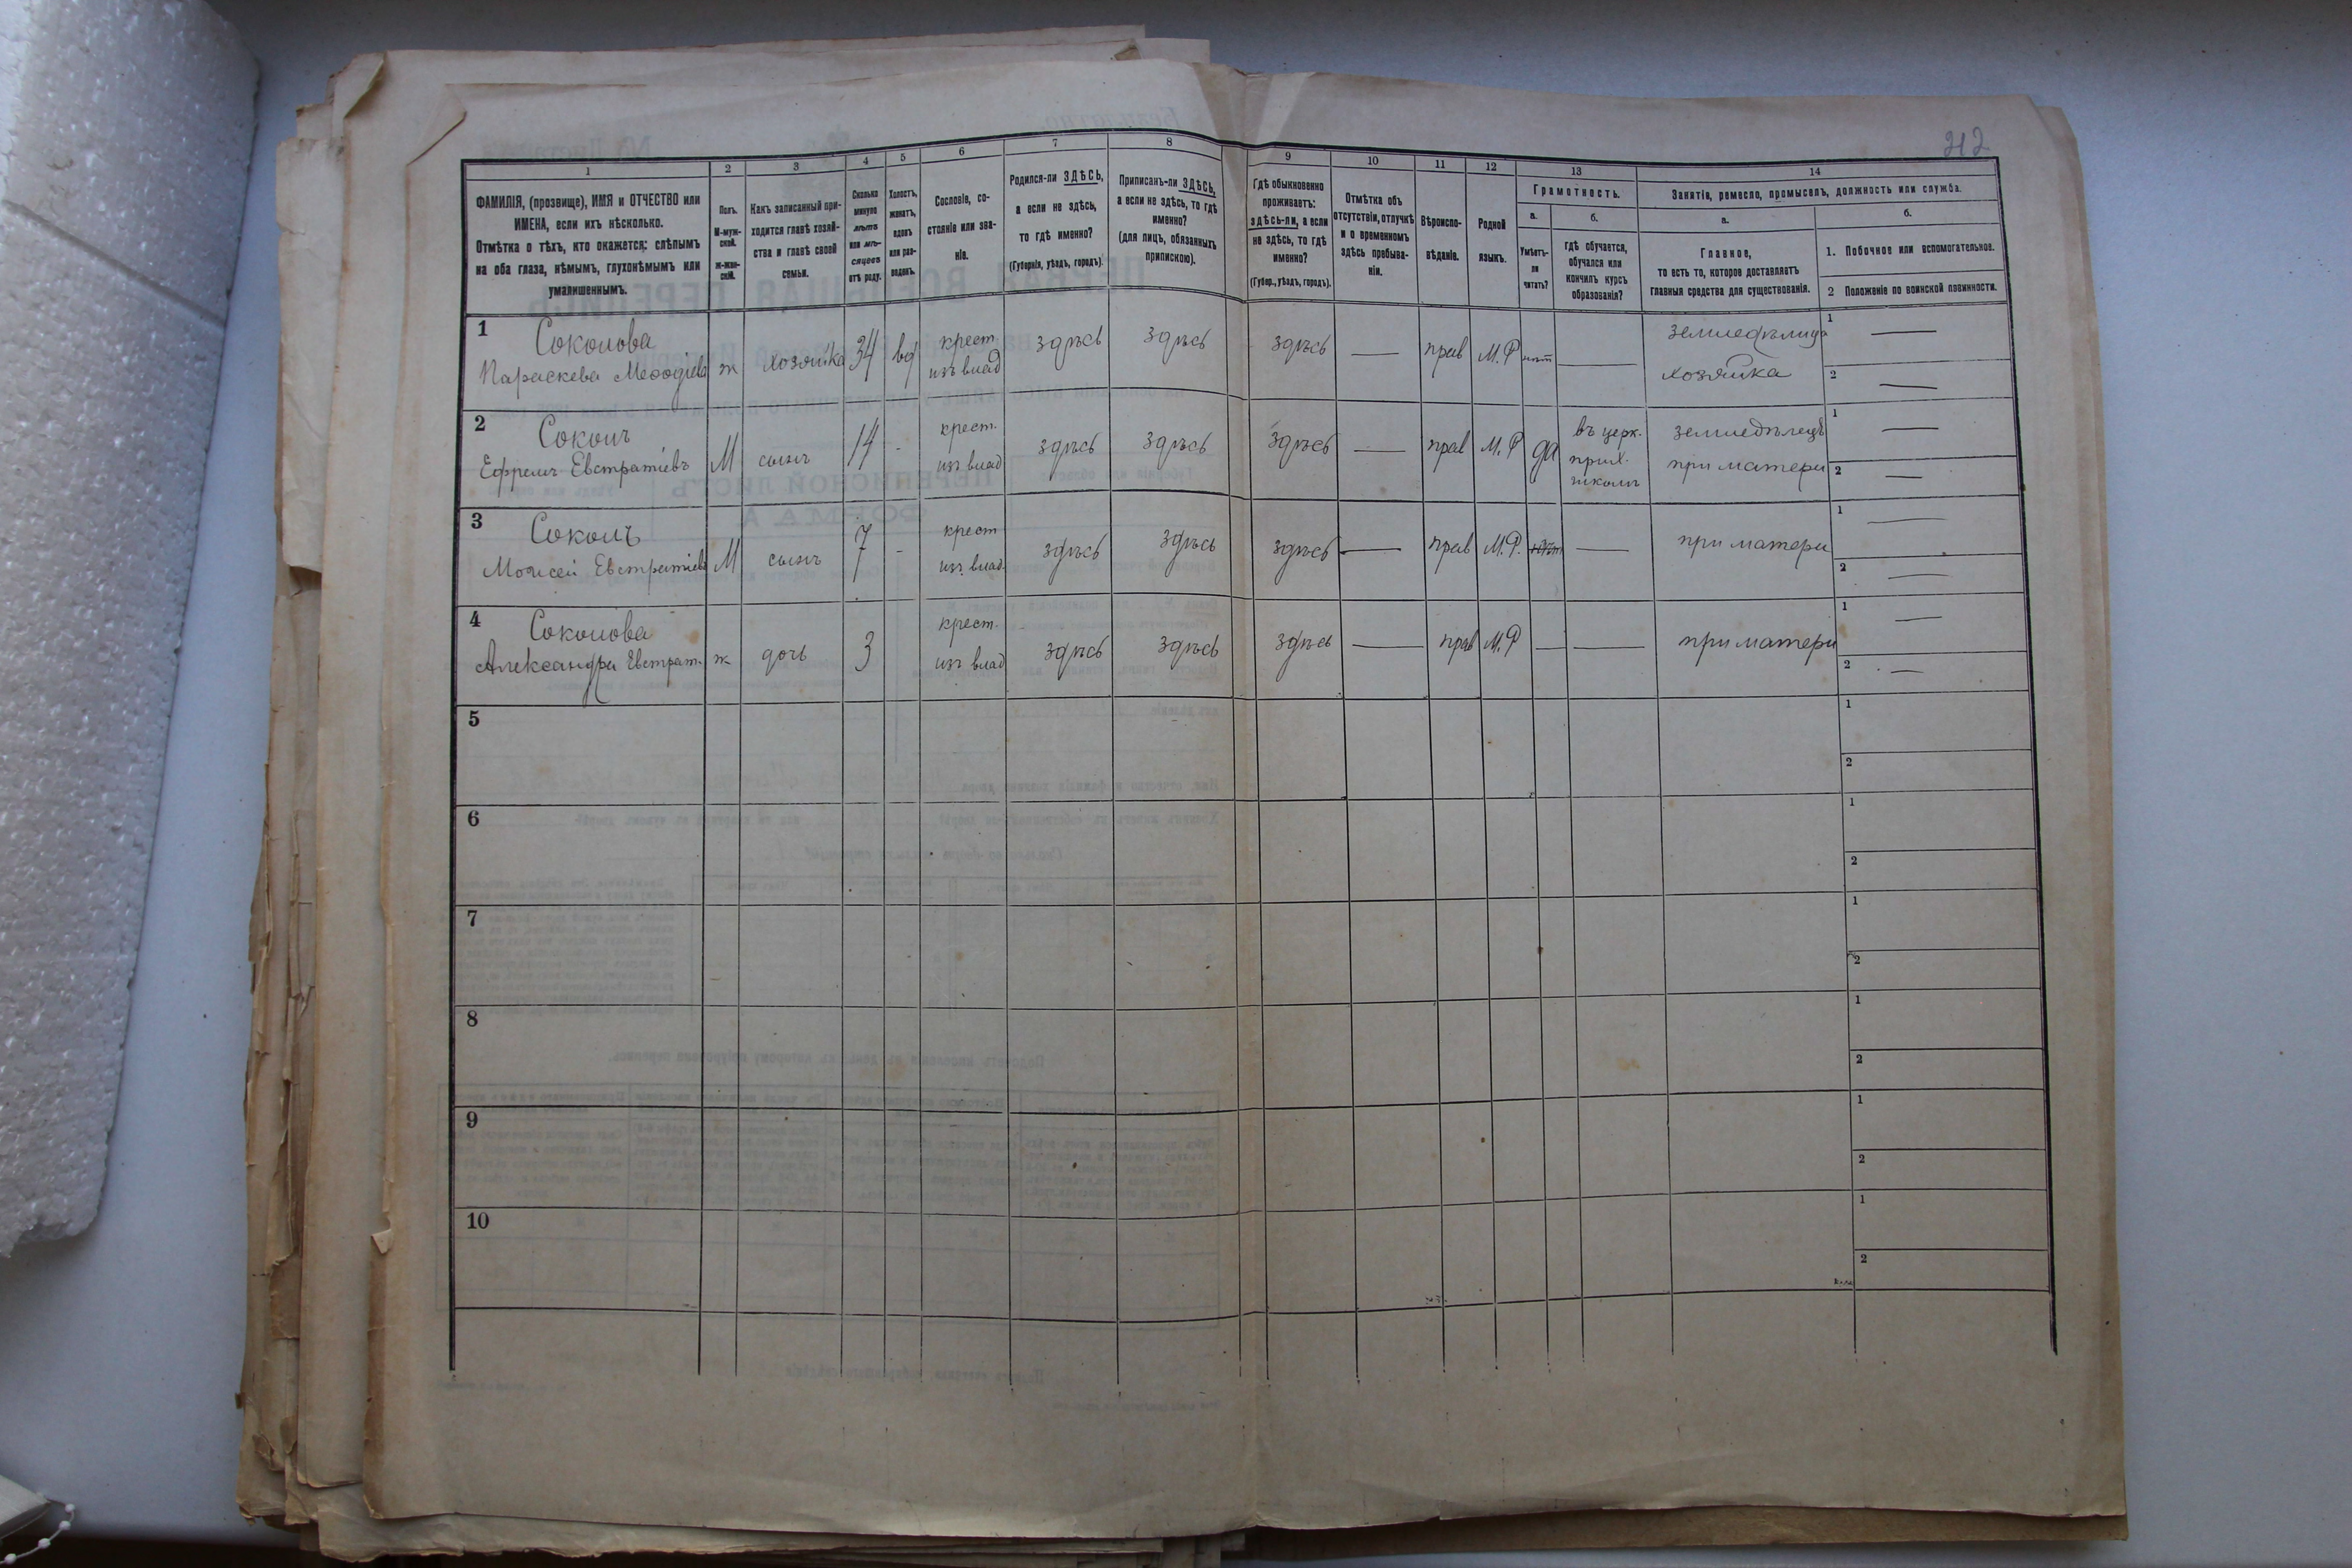 212
1 2 3 4 5 6 7 8 9 10 11 12 13 14
ФАМИЛІЯ, (прозвище), ИМЯ и ОТЧЕСТВО или
ИМЕНА, если ихъ нѣсколько.
Отмѣтка о тѣхъ, кто окажется: слѣпымъ
на оба глаза, нѣмымъ, глухонѣмымъ или
умалишеннымъ.
Полъ.
М-муж-
ской.
ж-жен-
скій.
Какъ записанный при-
ходится главѣ хозяй-
ства и главѣ своей
семьи.
Сколько
минуло
лѣтъ
или мѣ-
сяцевъ
отъ роду.
Холостъ,
женатъ,
вдовъ
или раз-
веденъ.
Сословіе, со-
стояніе или зва-
ніе.
Родился-ли ЗДѢСЬ,
а если не здѣсь,
то гдѣ именно?
(Губернія, уѣздъ, городъ).
Приписанъ-ли ЗДѢСЬ,
а если не здѣсь, то гдѣ
именно?
(для лицъ, обязанныхъ
припискою).
Гдѣ обыкновенно
проживаетъ:
здѣсь-ли, а если
не здѣсь, то гдѣ
именно?
(Губер., уѣздъ, городъ).
Отмѣтка объ
отсутствіи, отлучкѣ
и о временномъ
здѣсь пребыва-
ніи.
Вѣроиспо-
вѣданіе.
Родной
языкъ.
Грамотность.
а.
Умѣетъ-
ли
читать?
б.
гдѣ обучается,
обучался или
кончилъ курсъ
образованія?
Занятіе, ремесло, промыселъ, должность или служба.
а.
Главное,
то есть то, которое доставляетъ
главныя средства для существованія.
б.
1. Побочное или вспомогательное.
2 Положеніе по воинской повинности.
1 Соколова
Параскева Меѳодіева ж хозяйка 34 вд крест. изъ влад здѣсь здѣсь здѣсь — прав М.Р нѣт — земледѣлица хозяйка 1 — 2 —
2 Соколъ
Ефремъ Евстратіевъ М сынъ 14 - крест. изъ влад здѣсь здѣсь здѣсь — прав М.Р да въ церк. прих. школѣ земледѣлецъ при матери 1 — 2 —
3 Соколъ
Моисей Евстратіевъ М сынъ 7 - крест изъ влад. здѣсь здѣсь здѣсь — прав М.Р. нѣт — при матери 1 — 2 —
4 Соколова
Александра Евстрат. ж дочь 3 крест. изъ влад здѣсь здѣсь здѣсь — прав М.Р — — при матери 1 — 2 —
5 1 2
6 1 2
7 1 2
8 1 2
9 1 2
10 1 2